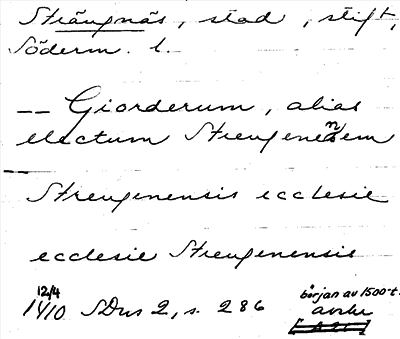 Strängnäs, stad, stift,
Söderm. l.
-- Giorderum, alias
electum Strengenensem
Strengenensis ecclesie
ecclesie Strengenensis
12/4
1410 SDns 2, s. 286
början av 1500-t.
avskr